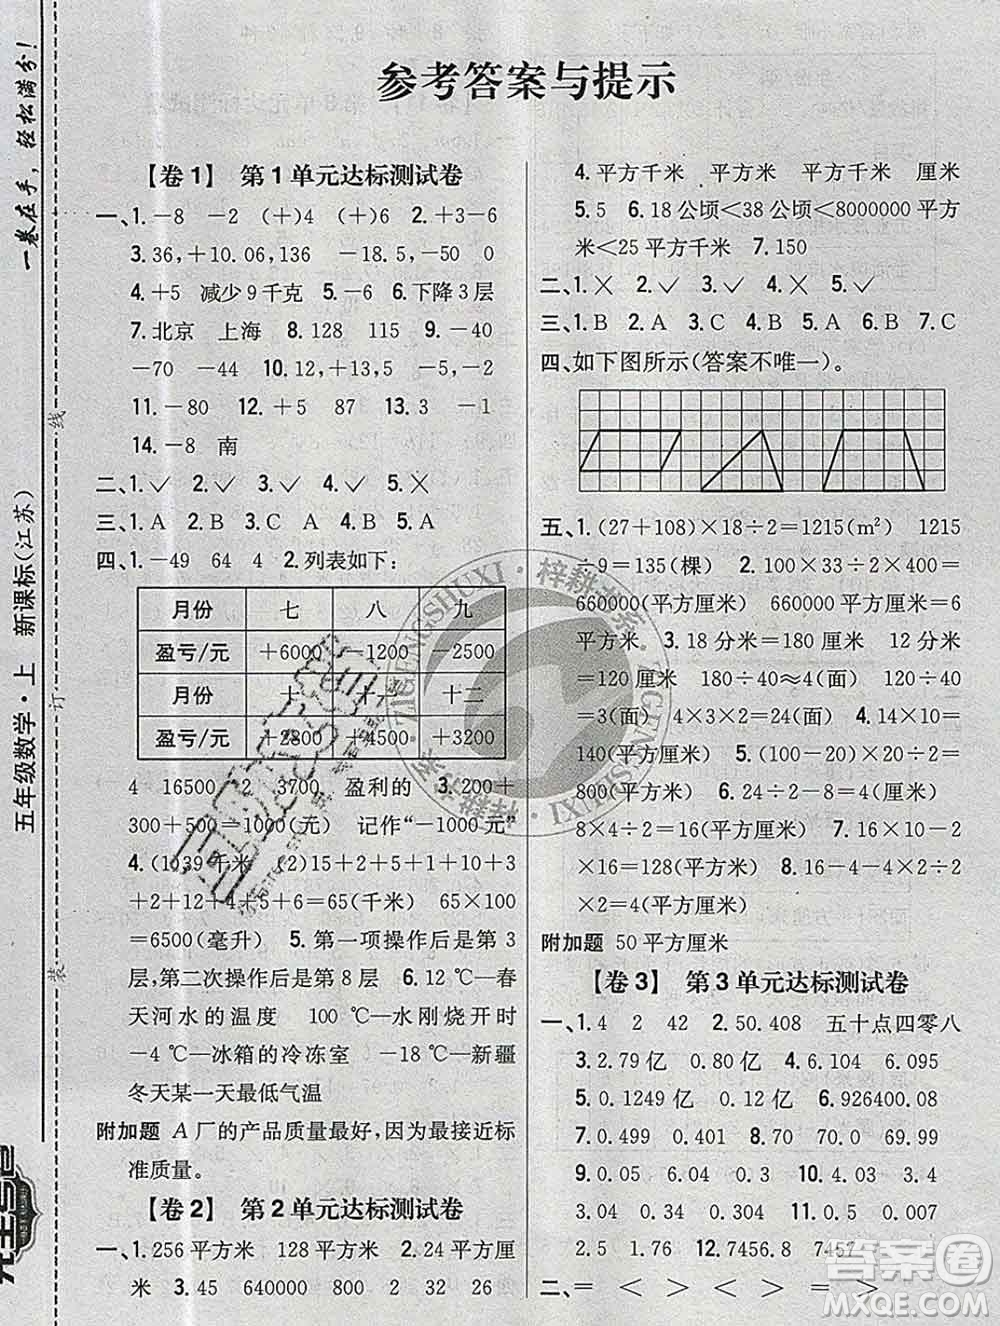 参考答案与提示
一卷在手，轻松满分！
五年级数学·上 新课标(江苏)
装 订 线
【卷1】 第1单元达标测试卷
一、1.－8 －2 (＋)4 (＋)6 2.＋3－6
3.36,＋10.06,136 －18.5,－50 0
4.＋5 减少9千克 5.－6 6.下降3层
7.北京 上海 8.128 115 9.－40
－70 －44 10.12,＋5,－5,－2
11.－80 12.＋5 87 13.3 －1
14.－8 南
二、1.√ 2.√ 3.√ 4.√ 5.×
三、1.A 2.B 3.C 4.A 5.B 6.A
四、1.－49 64 4 2.列表如下：
月份 七 八 九
盈亏/元 ＋6000 －1200 －2500
月份 十 十一 十二
盈亏/元 ＋2800 ＋4500 ＋3200
4 16500 2 3700 盈利的 3.200＋
300＋500＝1000(元) 记作“－1000元”
4.(1)39千米 (2)15＋2＋5＋1＋10＋3
＋2＋12＋4＋5＋6＝65(千米) 65×100＝
6500(毫升) 5.第一项操作后是第3
层,第二次操作后是第8层 6.12 ℃—春
天河水的温度 100 ℃—水刚烧开时
－4 ℃—冰箱的冷冻室 －18 ℃—新疆
冬天某一天最低气温
附加题 A厂的产品质量最好,因为最接近标
准质量。
【卷2】 第2单元达标测试卷
一、1.256平方米 128平方米 2.24平方厘
米 3.45 640000 800 2 32 26
4.平方千米 平方米 公顷 厘米
5.5 6.18公顷＜38公顷＜8000000平方
米＜25平方千米 7.150
二、1.× 2.√ 3.√ 4.× 5.√
三、1.B 2.A 3.C 4.B 5.A 6.B 7.C
四、如下图所示(答案不唯一)。
五、1.(27＋108)×18÷2＝1215(m²) 1215
÷9＝135(棵) 2.100×33÷2×400＝
660000(平方厘米) 660000平方厘米＝6
平方米 3.18分米＝180厘米 12分米
＝120厘米 180÷40≈4(面) 120÷40
＝3(面) 4×3×2＝24(面) 4.7×40÷2＝
140(平方厘米) 5.(100－20)×20÷2＝
800(平方米) 6.24÷2－8＝4(厘米)
8×4÷2＝16(平方厘米) 7.16×10－2
×16＝128(平方米) 8.16－4×4－2×2
×2＝4(平方米)
附加题 50平方厘米
【卷3】 第3单元达标测试卷
一、1.4 2 42 2.50.408 五十点四零八
3.2.79亿 0.80亿 4.6.104 6.095
5.0.1249亿 0.12亿 6.926400.08
7.0.49 0.401 8.70 70.0 69.99
9.0.05 0.04 10.4.53 4.62
0.376 0.375 11.0.5 0.007
2.5 1.76 12.7456.8 7457
二、＝ ＜ ＞ ＞ ＝ ＞
ZIGENGSHUXI · 梓耕书系 · ZIGENGSHUXI · 梓耕书系
答案圈
MXQE.COM